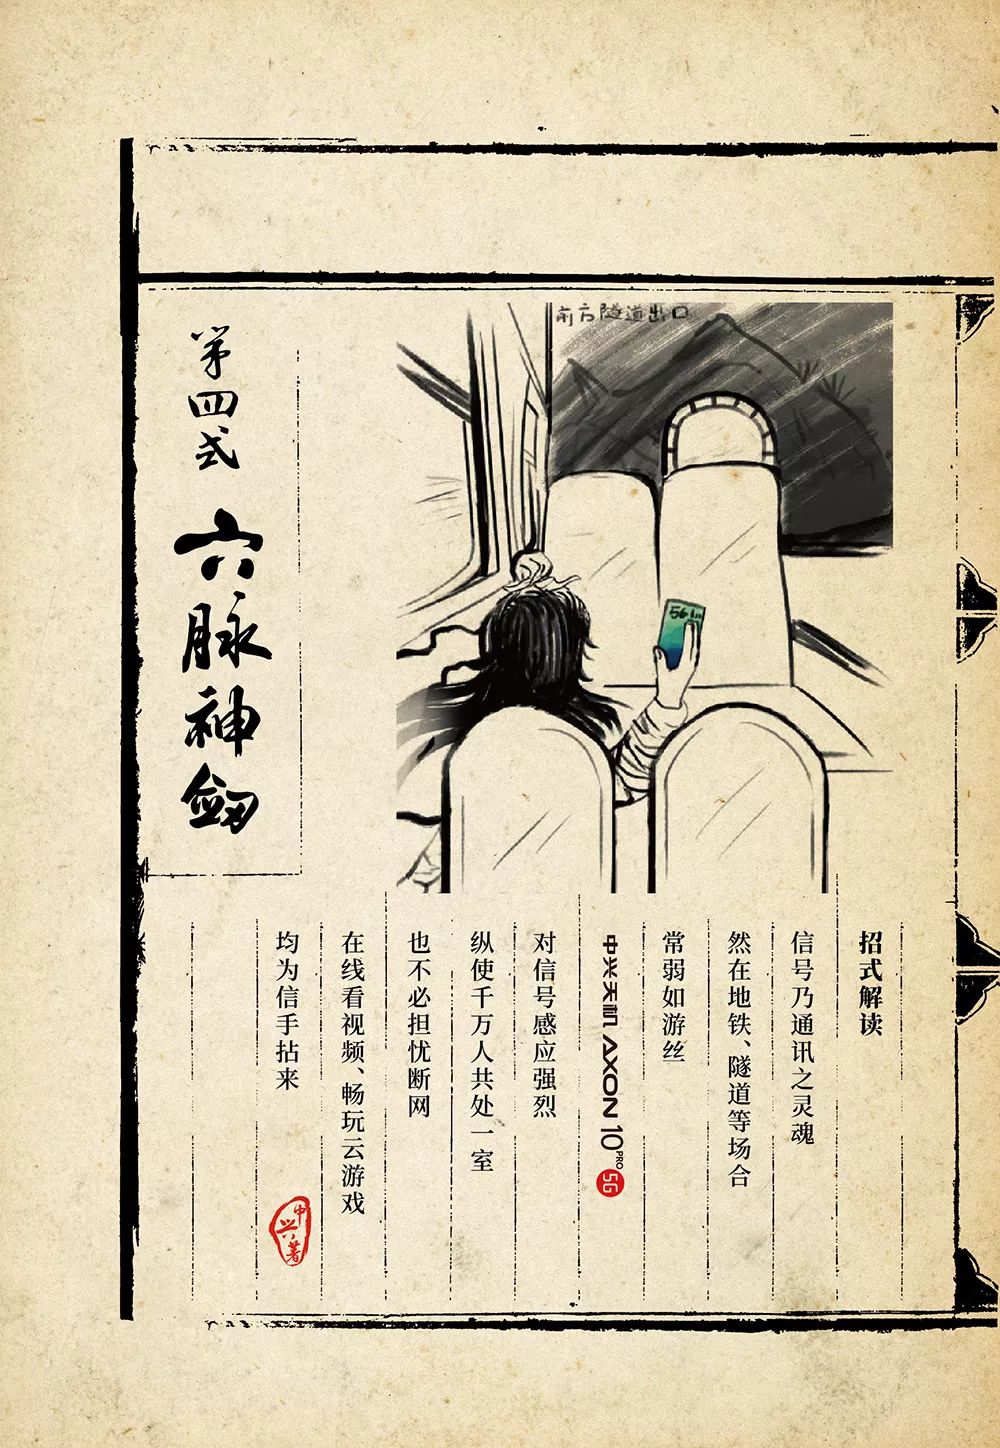 第四式 六脉神剑
前方隧道出口
5G
招式解读
信号乃通讯之灵魂
然在地铁、隧道等场合
常弱如游丝
中兴天机 AXON 10 PRO 5G
对信号感应强烈
纵使千万人共处一室
也不必担忧断网
在线看视频、畅玩云游戏
均为信手拈来
中兴著